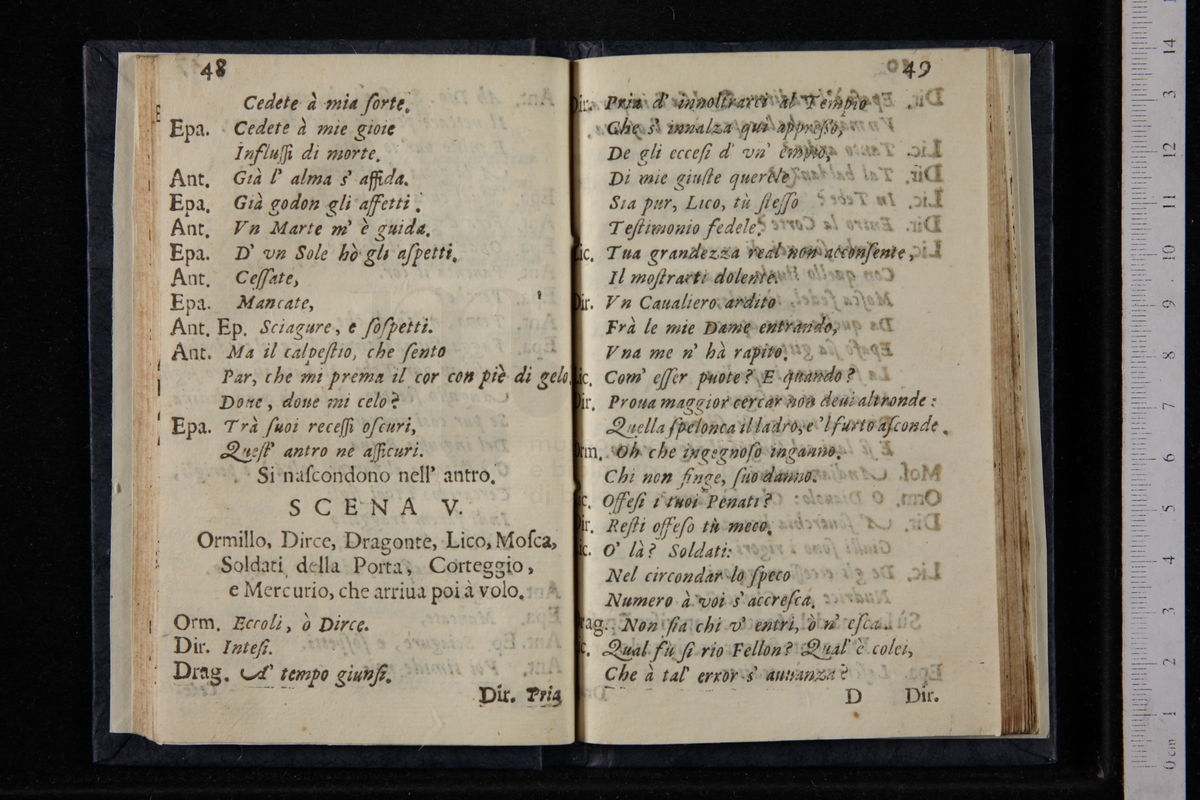 48
Cedete à mia ſorte.
Epa. Cedete à mie gioie
Influſſi di morte.
Ant. Già l' alma s' affida.
Epa. Già godon gli affetti.
Ant. Vn Marte m' è guida.
Epa. D' vn Sole hò gli aſpetti.
Ant. Ceſſate,
Epa. Mancate,
Ant. Ep. Sciagure, e ſoſpetti.
Ant. Ma il calpeſtio, che ſento
Par, che mi prema il cor con piè di gelo.
Doue, doue mi celo?
Epa. Trà ſuoi receſſi oſcuri,
Queſt' antro ne aſſicuri.
Si naſcondono nell' antro.
SCENA V.
Ormillo, Dirce, Dragonte, Lico, Moſca,
Soldati della Porta, Corteggio,
e Mercurio, che arriua poi à volo.
Orm. Eccoli, ò Dirce.
Dir. Inteſi.
Drag. A' tempo giunſi.
Dir. Pria
49
Dir. Pria d' innoltrarci al Tempio
Che s' innalza qui appreſſo,
De gliecceſi d' vn' empio,
Di mie giuſte querele
Sia pur, Lico, tù ſteſſo
Teſtimonio fedele.
Lic. Tua grandezza real non acconſente,
Il moſtrarti dolente.
Dir. Vn Caualiero ardito
Frà le mie Dame entrando,
Vna me n' hà rapito.
Lic. Com' eſſer puote? E quando?
Dir. Proua maggior cercar non deui altronde:
Quella ſpelonca il ladro, e 'l furto aſconde.
Orm. Oh che ingegnoſo inganno.
Chi non finge, ſuo danno.
Lic. Offeſi i tuoi Penati?
Dir. Reſti offeſo tù meco.
Lic. O' là? Soldati:
Nel circondar lo ſpeco
Numero à voi s' accreſca.
Drag. Non ſia chi v' entri, ò n' eſca.
Lic. Qual fù ſi rio Fellon? Qual' è colei,
Che à tal' error s' auuanza?
D Dir.